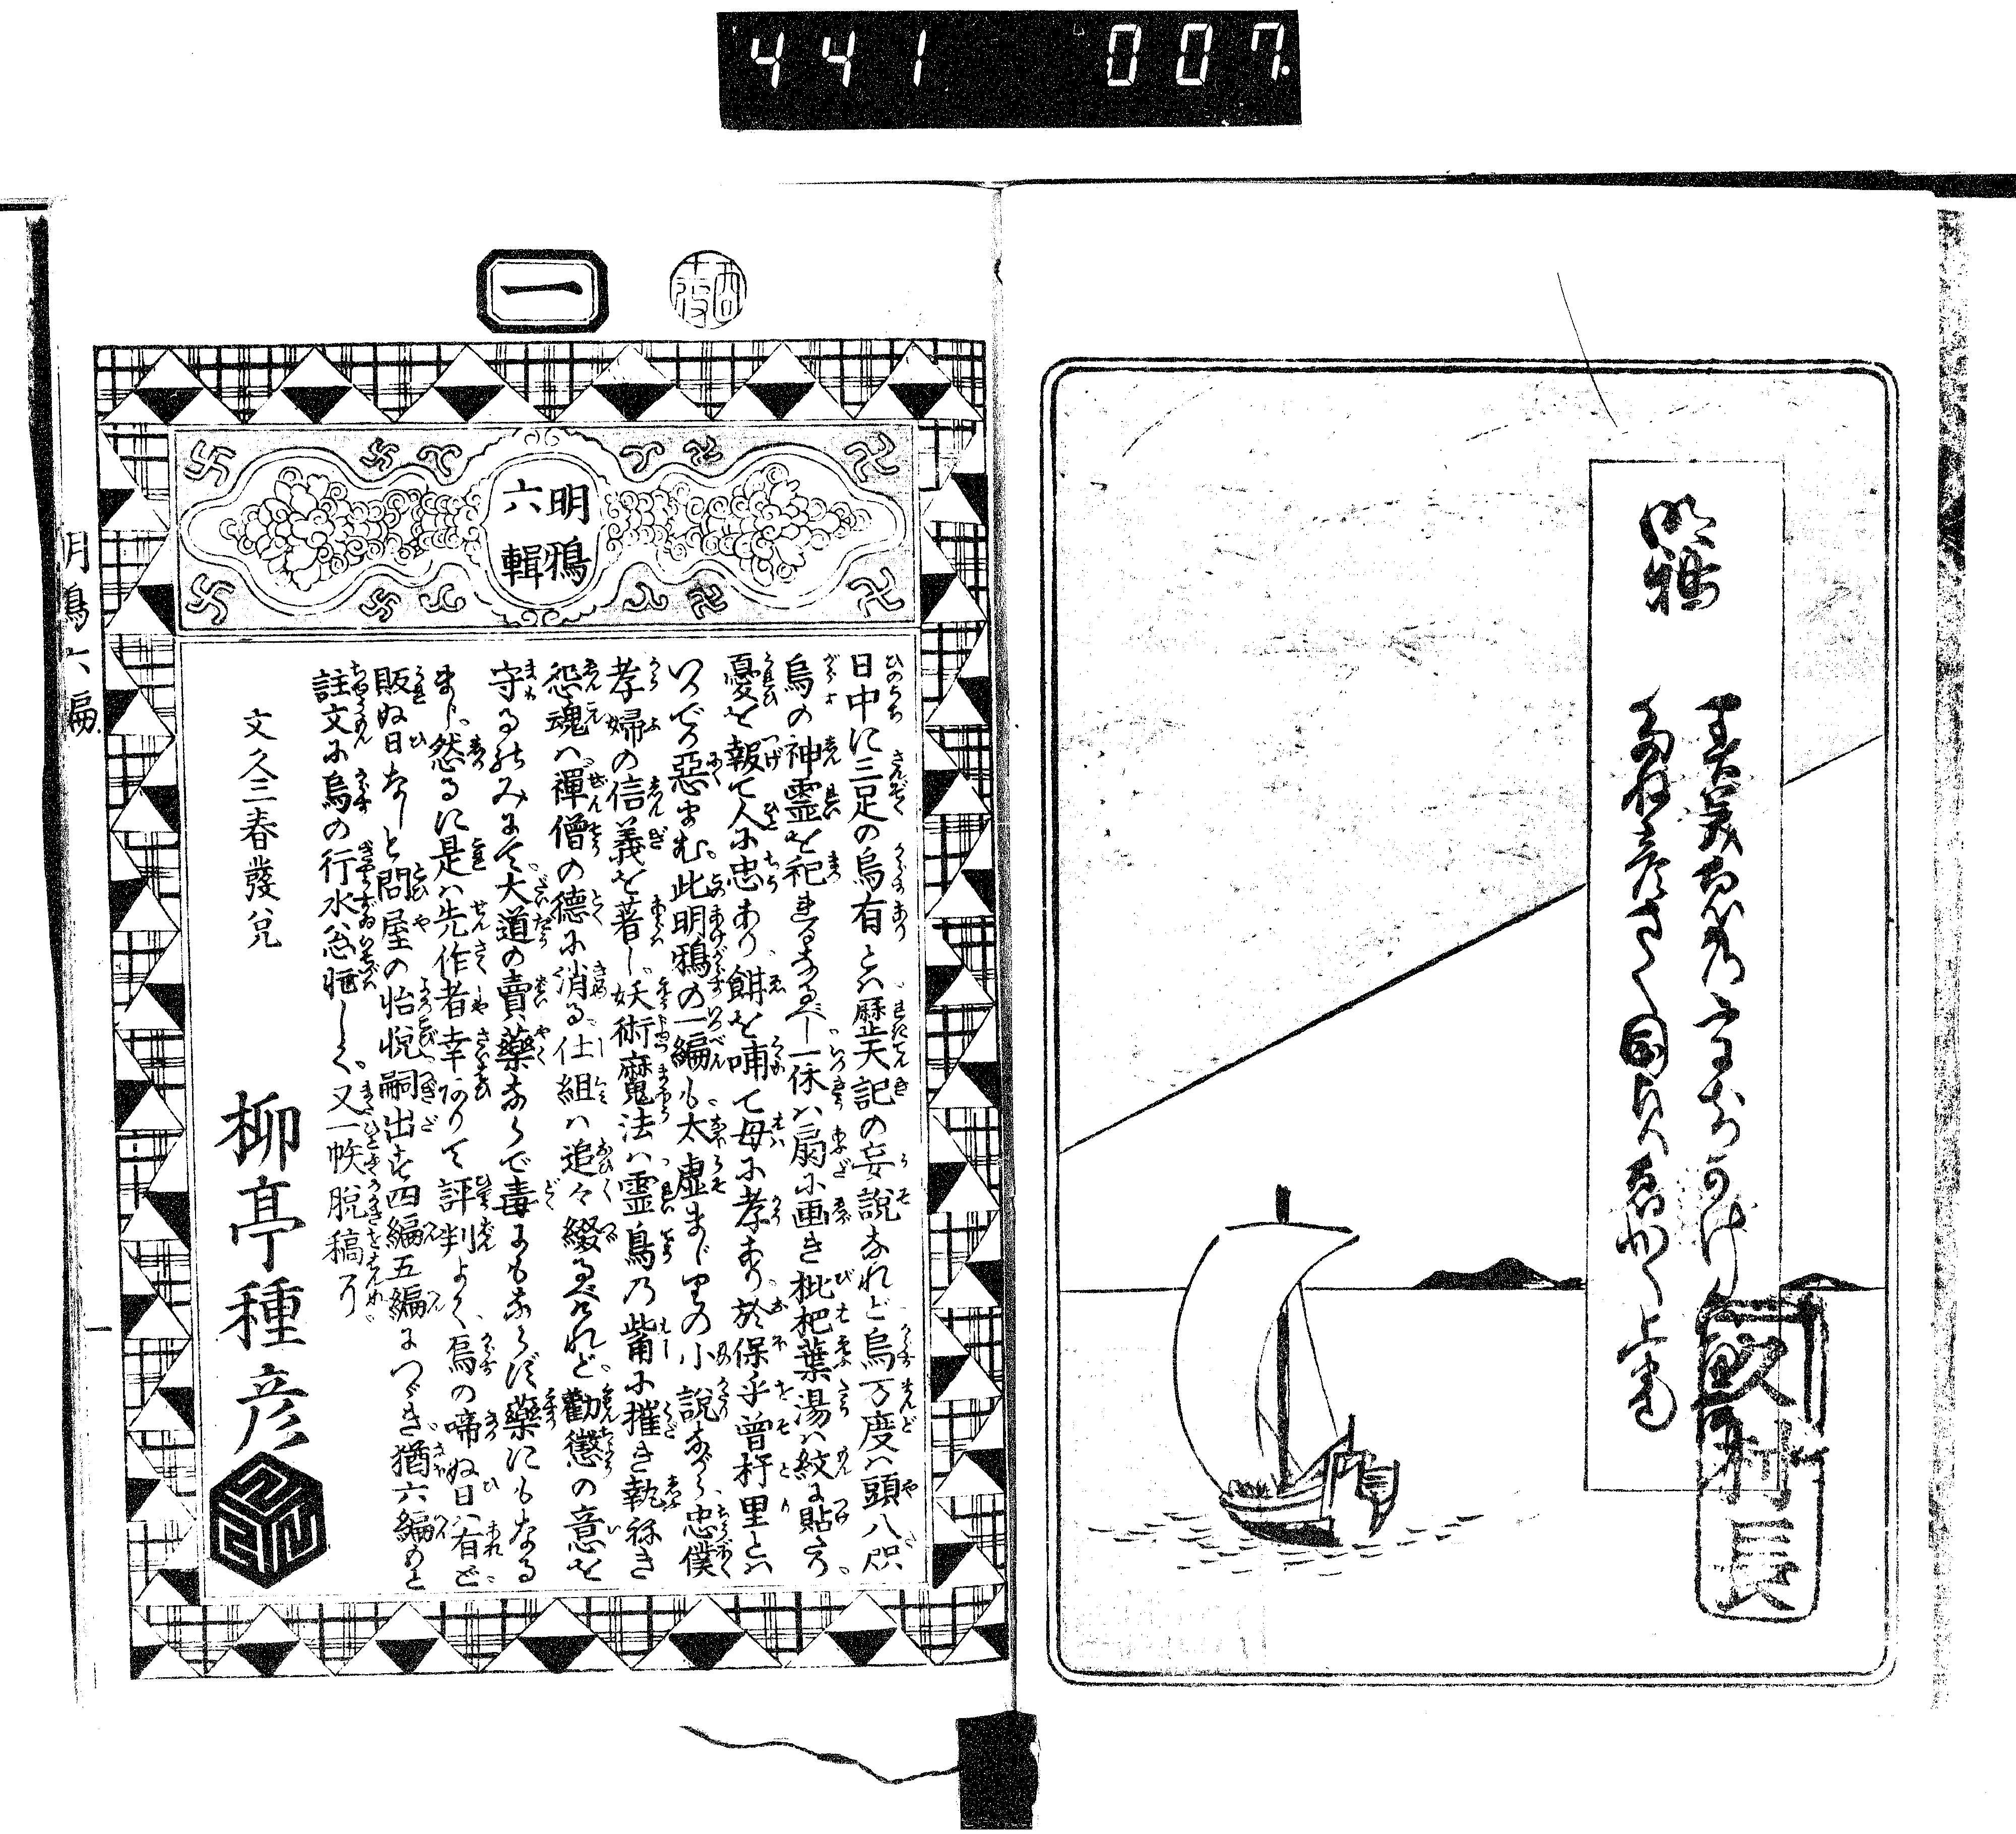 441 007.
明鴉
國貞
上
畝村長
一
明鴉
六輯
日中に三足の烏有とハ歴天記の妄説なれど烏万度ハ頭八咫
烏の神霊を祀れるなるべし一休ハ扇に画き枇杷葉湯ハ紋に貼る
憂を報て人に忠あり餌を哺て母に孝あり於保乎曾杼里とハ
いかで悪まむ此明鴉の一編も太虚まじりの小説ながら忠僕
孝婦の信義を著し妖術魔法ハ霊鳥乃觜に摧き執ねき
怨魂ハ禪僧の德に消る仕組ハ追々綴るべけれど勸懲の意を
守るのみにて大道の賣藥ならで毒にもならず藥にもなる
まじ然るに是ハ先作者幸ありて評判よく烏の啼ぬ日ハ有ど
販ぬ日なしと問屋の怡悅嗣出す四編五編につゞき猶六編のと
註文に烏の行水忩〻しく又一帙脫稿了
文久三春發兌
柳亭種彦
明烏六編
一